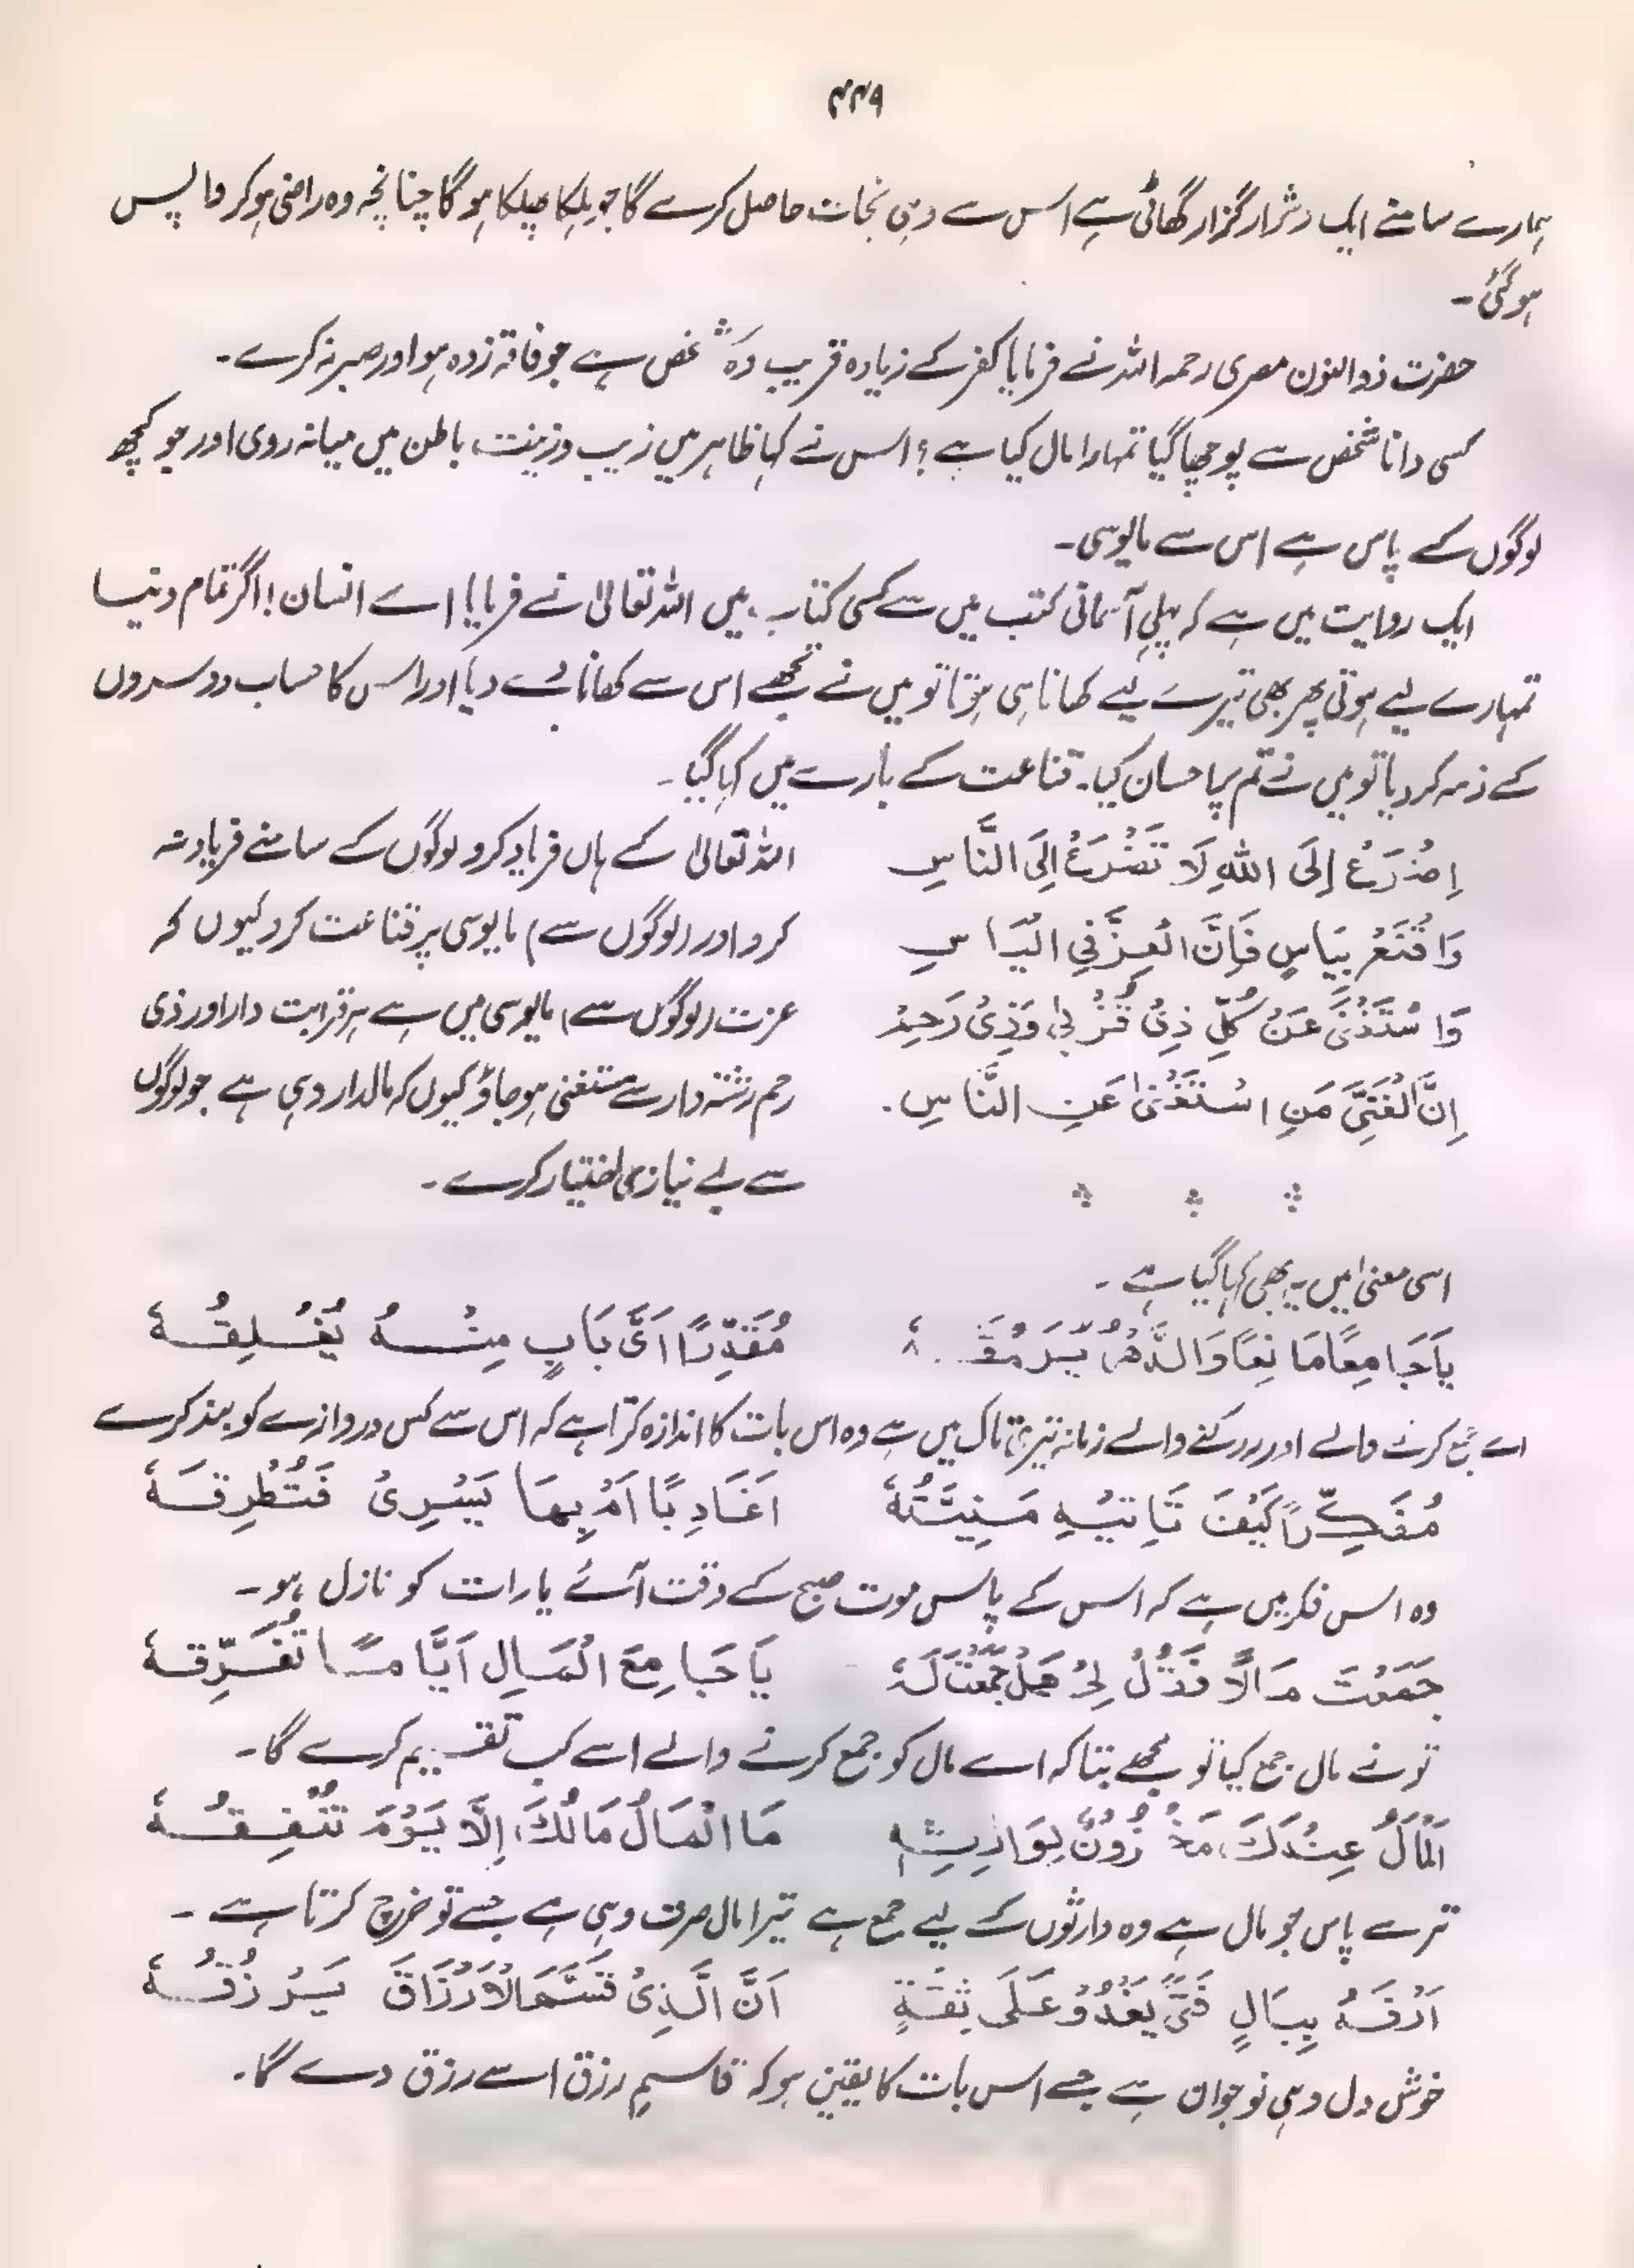 ۴۴۹
ہمارے سامنے ایک دشوار گزار گھاٹی ہے اس سے وہی نجات حاصل کرے گا جو ہلکا پھلکا ہو گا چنانچہ وہ راضی ہو کر واپس
ہو گئی۔
حضرت ذوالنون مصری رحمہ اللہ نے فرمایا کفر کے زیادہ قریب وہ شخص ہے جو فاقہ زدہ ہو اور صبر نہ کرے۔
کسی دانا شخص سے پوچھا گیا تمہارا مال کیا ہے؟ اس نے کہا ظاہر میں زیب و زینت، باطن میں میانہ روی اور جو کچھ
لوگوں کے پاس ہے اس سے مایوسی۔
ایک روایت میں ہے کہ پہلی آسمانی کتب میں سے کسی کتاب میں اللہ تعالیٰ نے فرمایا اے انسان! اگر تمام دنیا
تمہارے لیے ہوتی پھر بھی تیرے لیے کھانا ہی ہوتا تو میں نے تجھے اس سے کھانا دے دیا اور اس کا حساب دوسروں
کے ذمہ کر دیا تو میں نے تم پر احسان کیا۔ قناعت کے بارے میں کہا گیا۔
اِضْرَعْ اِلَى اللهِ لَا تَضْرَعْ اِلَى النَّاسِ
وَاقْنَعْ بِيَاسٍ فَاِنَّ الْعِزَّ فِي الْيَاسِ
وَاسْتَغْنَ عَنْ كُلِّ ذِىْ قُرْبٰى وَذِىْ رَحِمٍ
اِنَّ الْغَنِىَّ مَنِ اسْتَغْنٰى عَنِ النَّاسِ.
اللہ تعالیٰ کے ہاں فریاد کرو لوگوں کے سامنے فریاد نہ
کرو اور (لوگوں سے) مایوسی پر قناعت کرو کیوں کہ
عزت (لوگوں سے) مایوسی میں ہے ہر قرابت دار اور ذی
رحم رشتہ دار سے مستغنی ہو جاؤ کیوں کہ مالدار وہی ہے جو لوگوں
سے بے نیازی اختیار کرے۔
اسی معنیٰ میں یہ بھی کہا گیا ہے۔
يَا جَامِعًا مَانِعًا وَالدَّهْرُ يَرْمُقُهٗ مُقَدِّرًا اَىَّ بَابٍ مِنْهُ يُغْلِقُهٗ
اے جمع کرنے والے اور روکنے والے زمانہ تیری تاک میں ہے وہ اس بات کا اندازہ کرتا ہے کہ اس سے کس دروازے کو بند کرے
مُفَكِّرًا كَيْفَ تَاتِيْهِ مَنِيَّتُهٗ اَغَادِيًا اَمْ بِهَا يَسْرِىْ فَتُطْرِقَهٗ
وہ اس فکر میں ہے کہ اس کے پاس موت صبح کے وقت آئے یا رات کو نازل ہو۔
جَمَعْتَ مَالًا فَقُلْ لِىْ هَلْ جَمَعْتَ لَهٗ يَا جَامِعَ الْمَالِ اَيَّامًا تُفَرِّقُهٗ
تو نے مال جمع کیا تو مجھے بتا کہ اے مال کو جمع کرنے والے اسے کب تقسیم کرے گا۔
اَلْمَالُ عِنْدَكَ مَخْزُوْنٌ لِوَارِثِهٖ مَا الْمَالُ مَالُكَ اِلَّا يَوْمَ تُنْفِقُهٗ
ترے پاس جو مال ہے وہ وارثوں کے لیے جمع ہے تیرا مال صرف وہی ہے جسے تو خرچ کرتا ہے۔
اَرْفَهُ بِبَالٍ فَتًى يَغْدُوْ عَلَى ثِقَةٍ اَنَّ الَّذِىْ قَسَّمَ الْاَرْزَاقَ يَرْزُقُهٗ
خوش دل وہی نوجوان ہے جسے اس بات کا یقین ہو کہ قاسمِ رزق اسے رزق دے گا۔